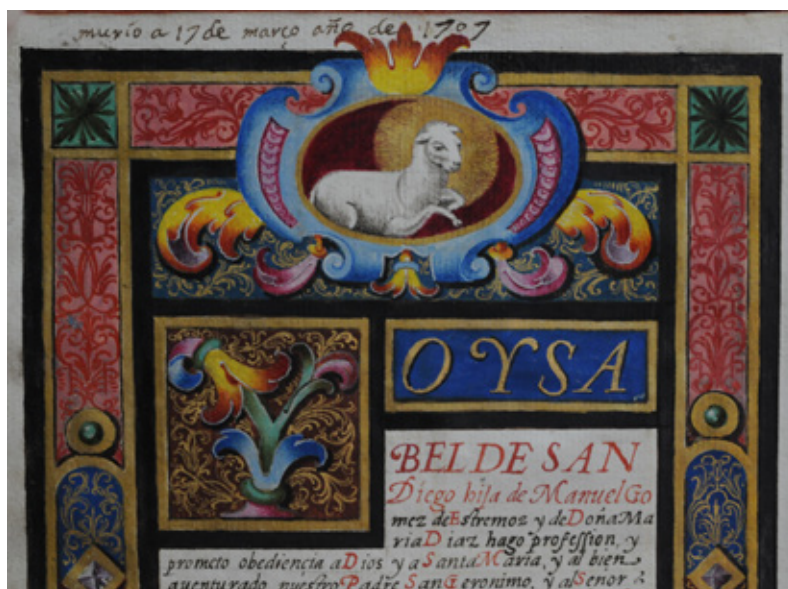 murio a 17 de março año de 1707
YO YSA
BEL DE SAN
Diego hija de Manuel Go
mez de Estremoz y de Doña Ma
ria Diaz hago profession, y
prometo obediencia a Dios y a Santa Maria, y al bien
auenturado nuestro Padre San Geronimo, y al Senor